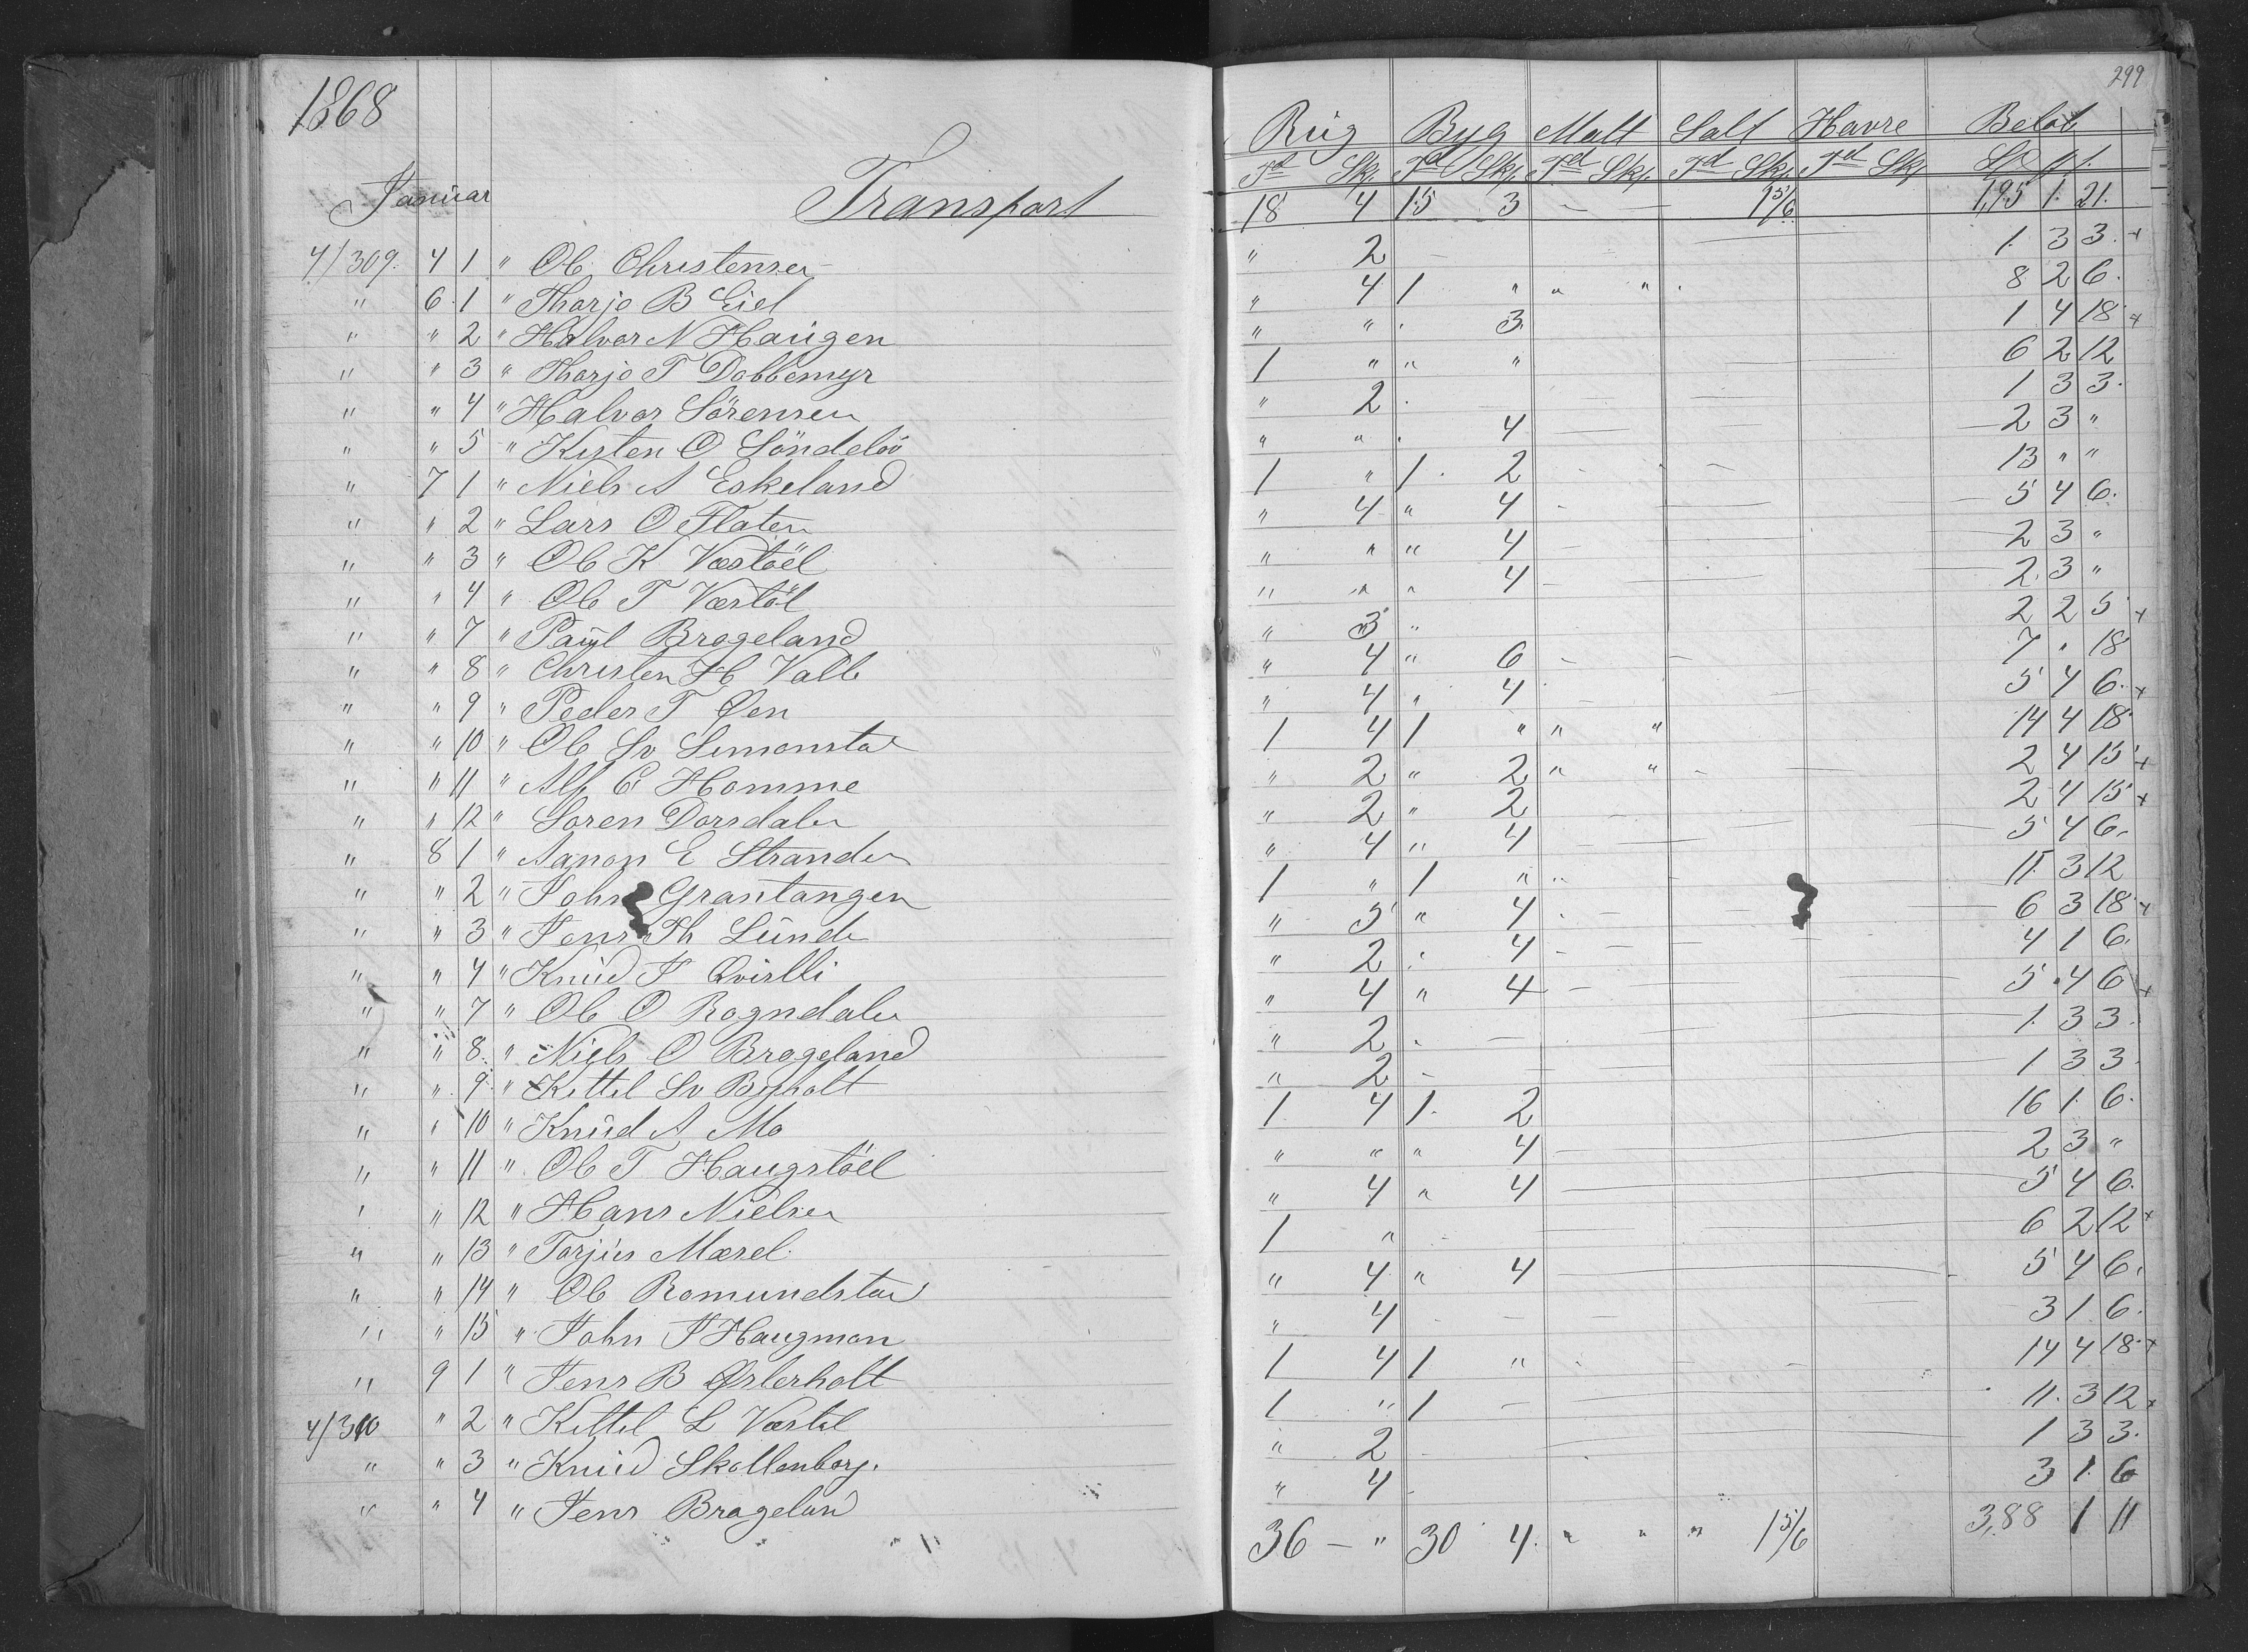 299
1868
Rug Byg Malt Salt Havre Beløb
Januar Td Skp. Td Skp. Td Skp. Td Skp. Td Skp
Transport 18 4 15 3 — — 1 5/6 195 1. 21.
4/309. 4 1 " Ole Christensen " 2 — 1. 3 3. +
" 6. 1 " Thorje B Eiel " 4 1 " " " . 8 2 6.
" " 2 " Halvor N Haugen " " . 3. 1 4 18. +
" " 3 " Thorje T Dobbemyr 1 " " " 6 2 12
" " 4 " Halvor Sörensen " 2 . 1 3 3.
" " 5 " Kisten O Söndelöö " " . 4 2 3 "
" 7 1 " Niels A Eskeland 1 " 1. 2 13 " "
" " 2 " Lars O Flaten " 4 " 4 5 4 6.
" " 3 " Ole K Væstöel " " " 4 2 3 "
" " 4 " Ole T Værtöl " " " 4 2. 3 "
" " 7 " Paul Brageland " 3 " 2 2 5 +
" " 8 " Christen H Valle " 4 " 6 7 " 18
" " 9 " Peder T Øen " 4 " 4 5 4 6. +
" " 10 " Ole Sv Simonstad 1 4 1 " " " 14 4 18.
" " 11 " Alf E Homme " 2 " 2 " " 2 4 15 +
" " 12 " Soren Dorsdalen " 2 " 2 2 4 15 +
" 8 1 " Aanon E Stranden " 4 " 4 5 4 6.
" " 2 " John Grantangen 1 " 1 " " 11. 3 12
" " 3 " Jens Th Lunde " 5 " 4 6 3 18 +
" " 4 " Knud J Qvislli " 2 . 4 4 1 6.
" " 7 " Ole O Rogndalen " 4 " 4 5 4 6 +
" " 8. " Niels O Brageland " 2 . — 1. 3 3.
" " 9. " Kettel Sv Bÿholt " 2 — 1 3 3.
" " 10 " Knud A Mo 1 4 1. 2 16 1. 6.
" " 11 " Ole T Haugstöel " " " 4 2 3 "
" " 12 " Hans Nielsen " 4 " 4 5 4 6.
" " 13 " Torjus Mæsel. 1 " 6 2 12 +
" " 14 " Ole Romundstad " 4 " 4 5 4 6.
" " 15 " John J Haugmon " 4 — 3 1. 6.
" 9 1 " Jens B Østerholt 1 4 1 " 14 4 18. +
4/310 " 2 " Kettel L Værtel 1 " 1 — 11. 3 12 +
" " 3 " Knud Skollenborg. " 2 1 3 3.
" " 4 " Jens Brageland " 4 3 1. 6
36 — " 30 4. " " " 1 5/6 388 1 11